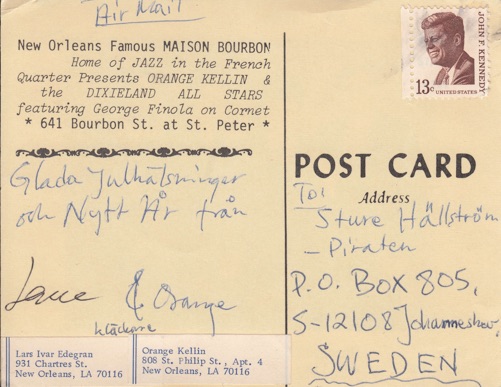 Air Mail
New Orleans Famous MAISON BOURBON
Home of JAZZ in the French
Quarter Presents ORANGE KELLIN &
the DIXIELAND ALL STARS
featuring George Finola on Cornet
* 641 Bourbon St. at St. Peter *
Glada Julhälsninger
och Nytt År från
& Orange
Lars Ivar Edegran
931 Chartres St.
New Orleans, LA 70116
Orange Kellin
808 St. Philip St., Apt. 4
New Orleans, LA 70116
JOHN F. KENNEDY
13c UNITED STATES
POST CARD
Address
To:
Sture Hällström
– Piraten
P.O. BOX 805,
S-12108 Johanneshov,
SWEDEN